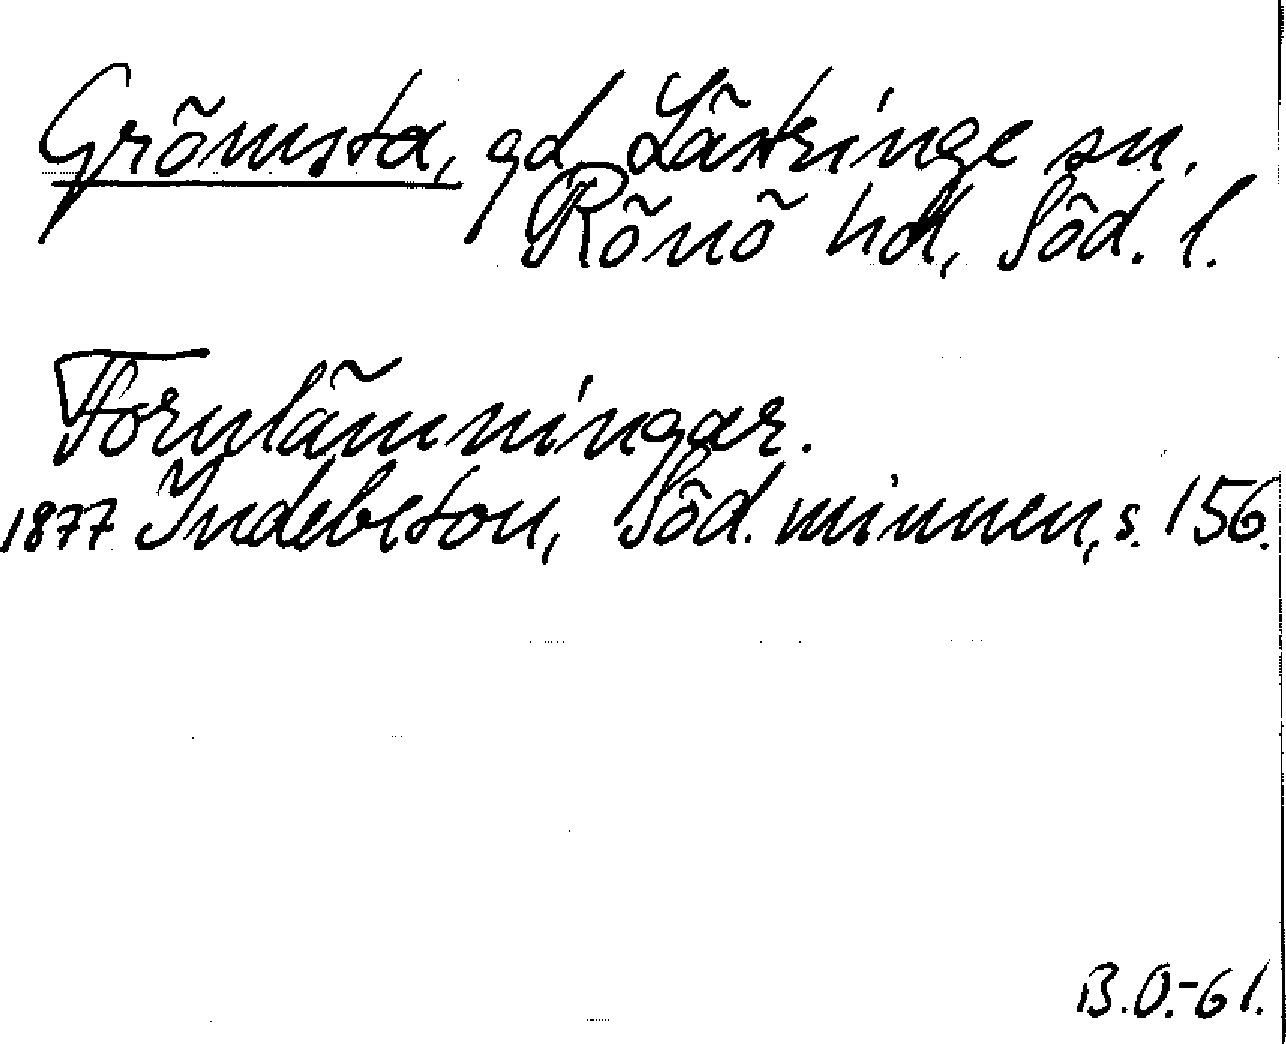 Grömsta, gd Lästringe sn,
Rönö hd, Söd. l.
Fornlämningar.
1877 Indebetou, Söd. minnen, s. 156.
B.O.-61.